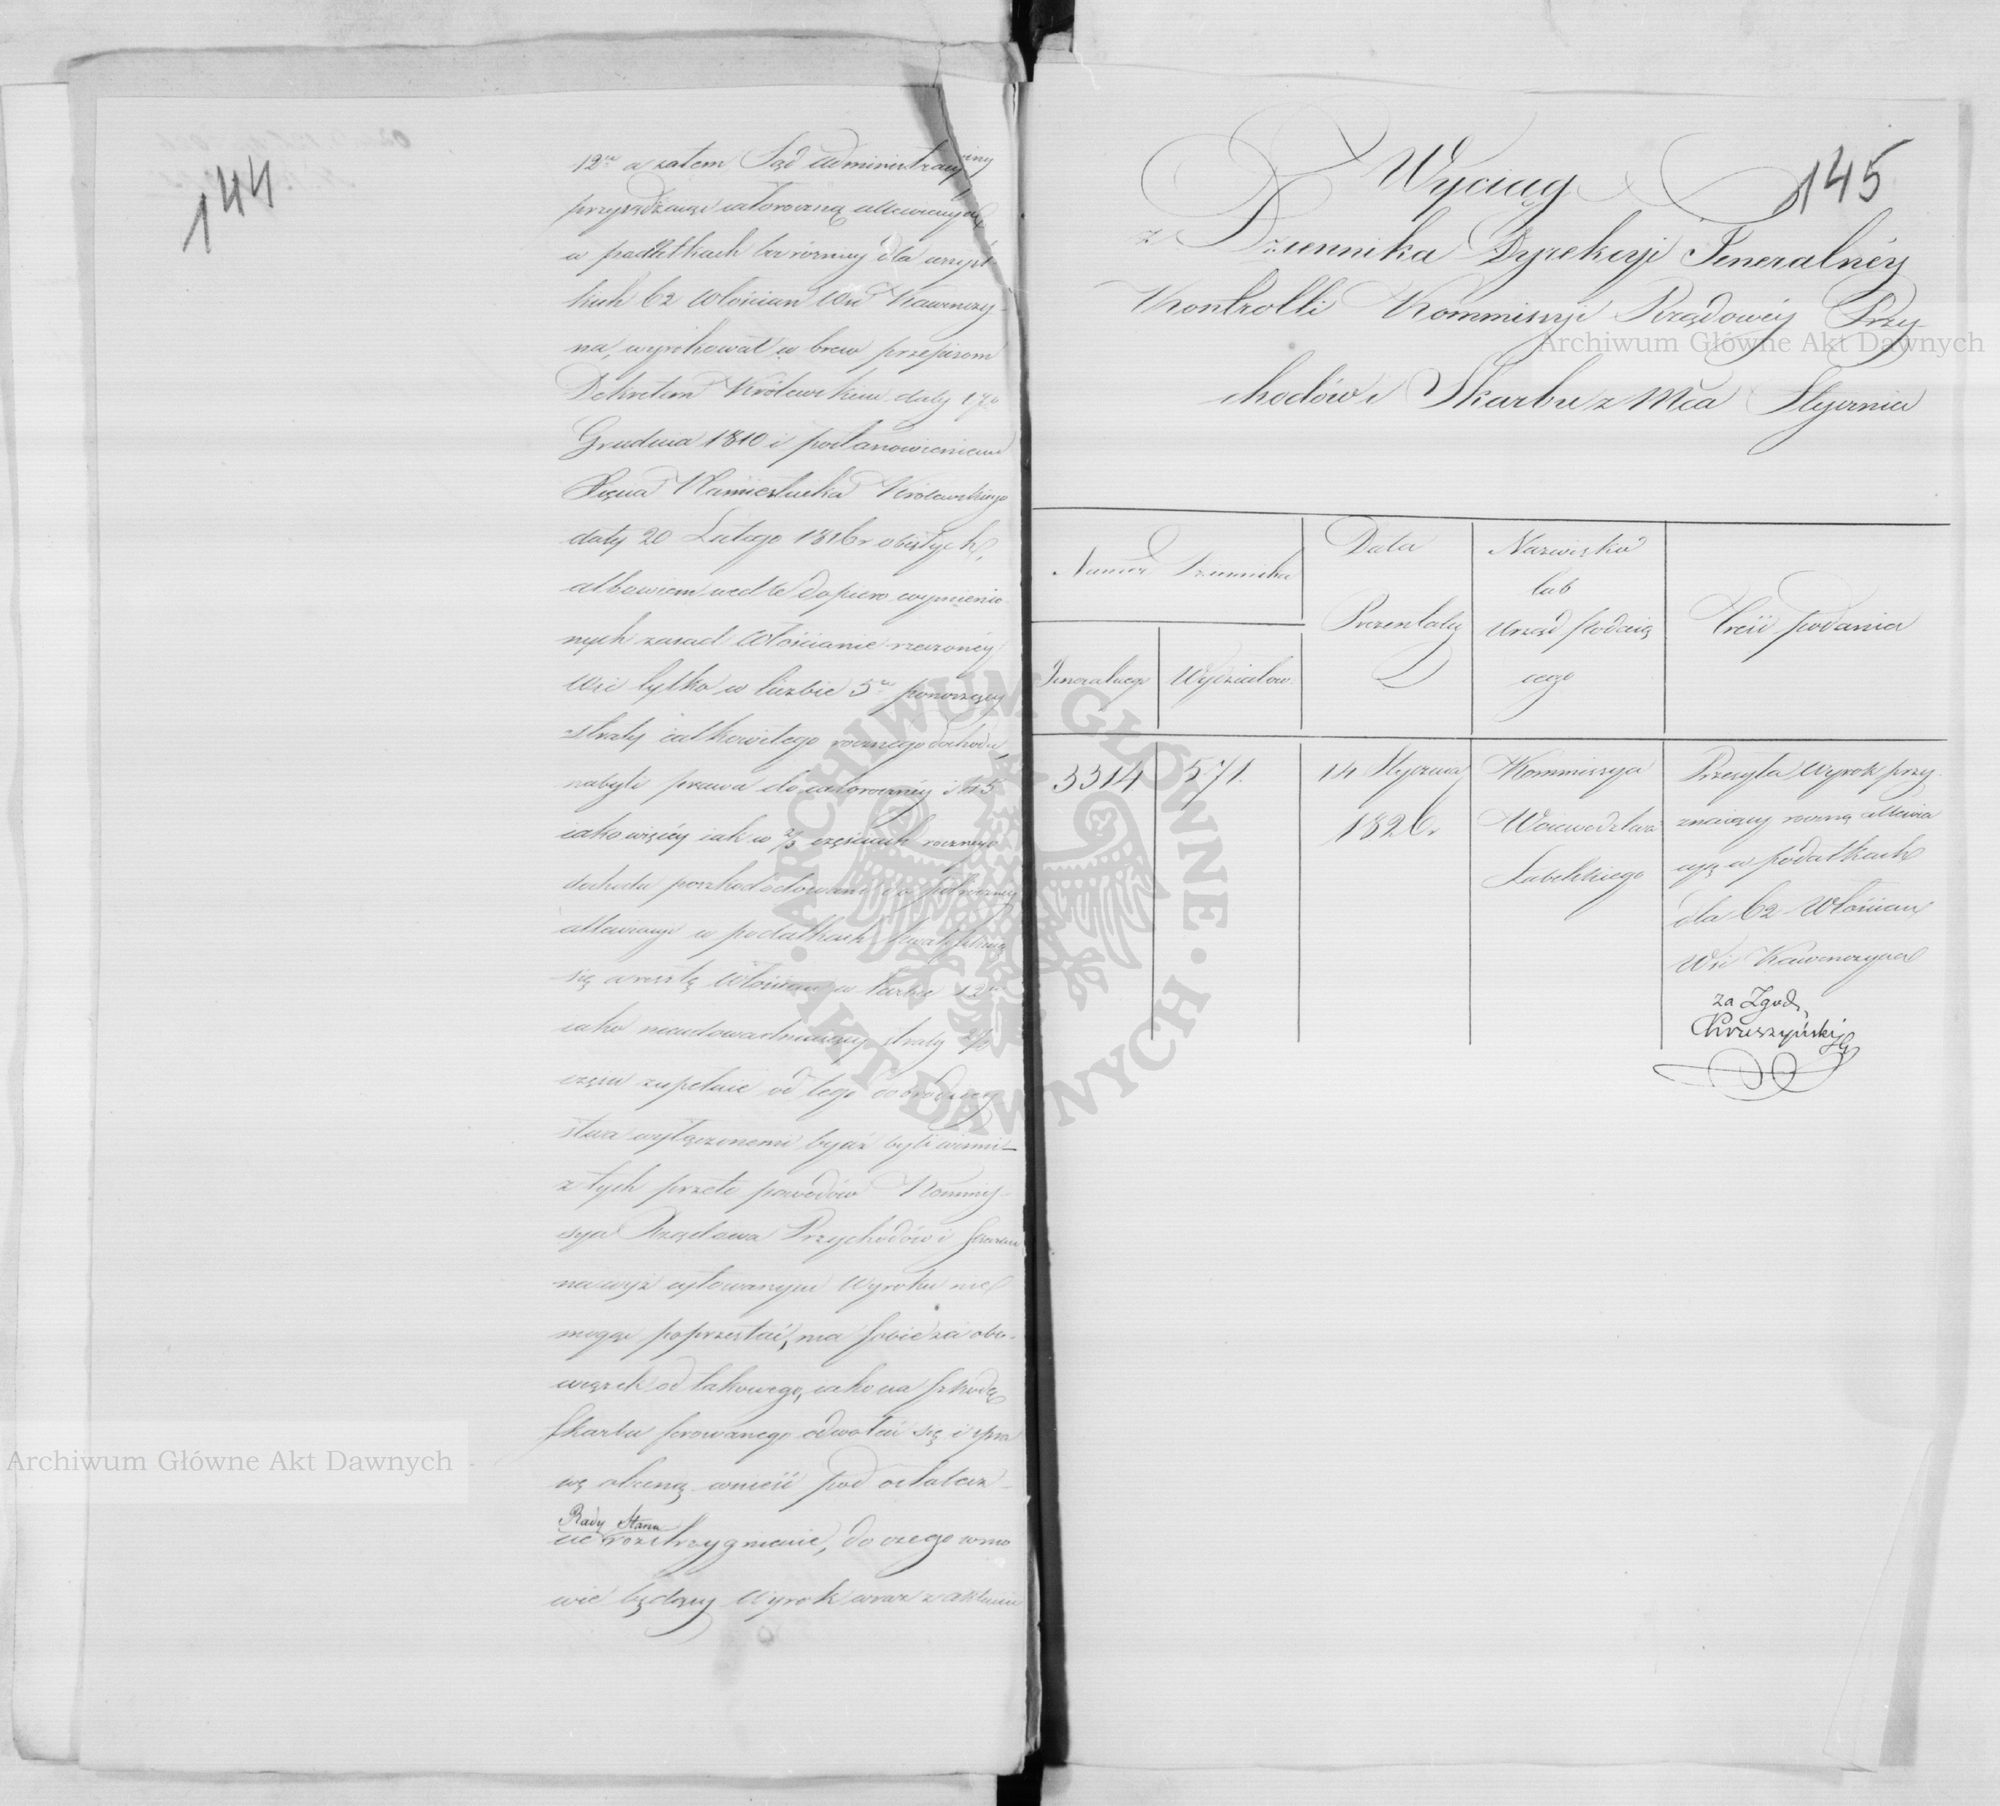 144
12u a zatem Sąd Administracyiny
przysądzaiąc całoroczną allewiacyą
w podatkach bez różnicy dla wszyst-
kich 62 Włościan Wsi Kawenczy-
na, wyrokował w brew przepisom
Dekretem Królewskim daty 17o
Grudnia 1810 i postanowieniem
Xięcia Namiestnika Królewskiego
daty 20 Lutego 1816 r obiętych,
albowiem wedle dopiero wymienio-
nych zasad Włościanie rzeczoney
Wsi tylko w liczbie 5u ponoszący
straty całkowitego rocznego dochodu,
nabyli prawa do całoroczney i 45
iako więcey iak w 2/3 częściach rocznego
dochodu poszkodowani do półroczney
allewiacyi w podatkach kwalifikuią
się a resztę Włościan w liczbie 12u
iako nieudowadniaiący straty 2/3
części zupełnie od tego dobrodziey-
stwa wyłączonemi bydź byli winni
z tych przeto powodów Kommis-
sya Rządowa Przychodów i Skarbu
na wyż cytowanym Wyroku nie
mogąc poprzestać, ma sobie za obo-
wiązek od takowego, iako na szkodę
Skarbu ferowanego odwołać się i spra-
wę obecną wnieść pod ostatecz-
Rady Stanu
ne rozstrzygnienie, do czego w mo
wie będący Wyrok wraz z aktami
145
Wyciąg
z Dziennika Dyrekcyi Jeneralnéy
Kontrolli Kommissyi Rządowéy Przy-
chodów i Skarbu z Mca Stycznia
Numer Dziennika
Data
Prezentaty
Nazwisko
lub
Urząd podaią
cego
Treść podania
Jeneralnego
Wydziałow.
3314
571.
14 Stycznia
1826 r
Kommissya
Woiewodztwa
Lubelskiego
Przesyła Wyrok przy-
znaiący roczną allewia
cyą w podatkach
dla 62 Włościan
Wsi Kawenczyna
za Zgod.
Kruszyński
Archiwum Główne Akt Dawnych
Archiwum Główne Akt Dawnych
ARCHIWUM GŁÓWNE
AKT DAWNYCH